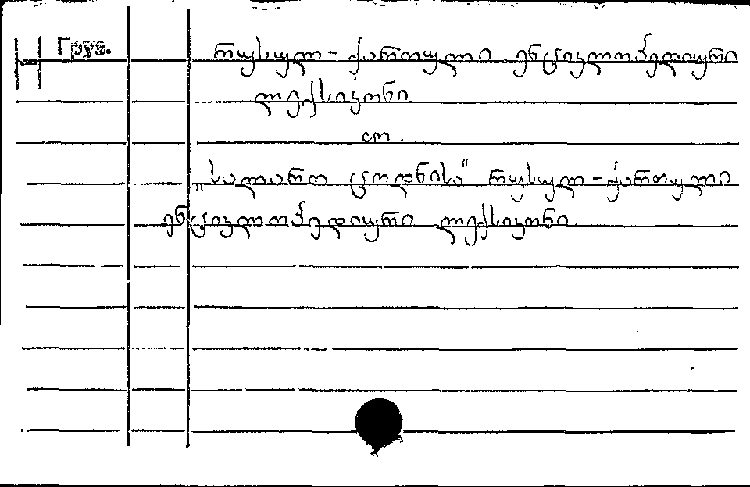 Н Груз. რუსულ-ქართული ენციკლოპედიური
ლექსიკონი
см.
„სალარო ცოდნისა“ რუსულ-ქართული
ენციკლოპედიური ლექსიკონი